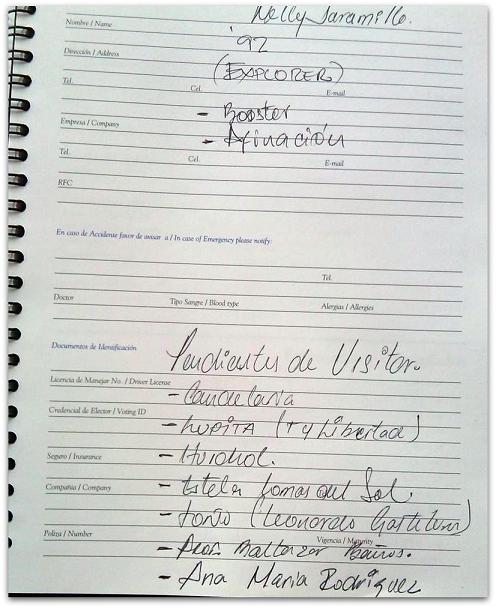 Nelly Jaramillo.
Nombre / Name
'92
Dirección / Address
(EXPLORER)
Tel. Cel. E-mail
- Booster
Empresa / Company
- Afinación
Tel. Cel. E-mail
RFC
En caso de Accidente favor de avisar a / In case of Emergency please notify:
Tel.
Doctor Tipo Sangre / Blood type Alergias / Allergies
Documentos de Identificación
Pendientes de Visitar.
Licencia de Manejar No. / Driver License
- Candelaria
Credencial de Elector / Voting ID
- Lupita (T y Libertad)
Seguro / Insurance
- Huichol.
Compañia / Company
- Estela Lomas del Sol.
- (Leonardo
Poliza / Number Vigencia / Maturity
- Prof. Baltazar Baños.
- Ana Maria Rodriguez